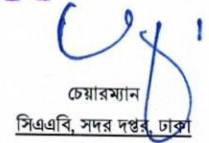 চেয়ারম্যান
সিএএবি, সদর দপ্তর, ঢাকা